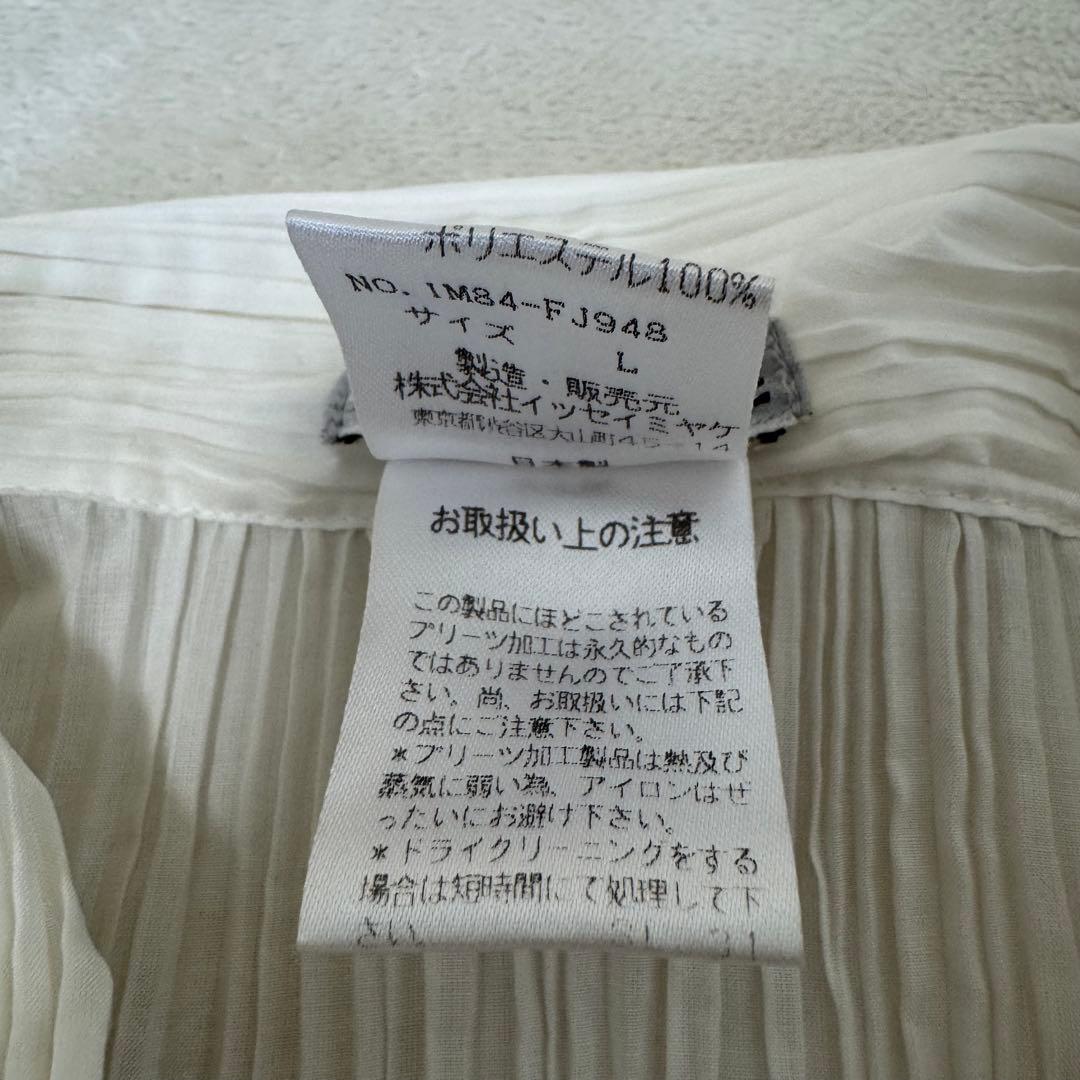 ポリエステル100%
NO. IM84-FJ948
サイズ L
製造・販売元
株式会社イッセイミヤケ
東京都渋谷区大山町45-14
日本製
お取扱い上の注意
この製品にほどこされている
プリーツ加工は永久的なもの
ではありませんのでご了承下
さい。尚、お取扱いには下記
の点にご注意下さい。
*プリーツ加工製品は熱及び
蒸気に弱い為、アイロンはぜ
ったいにお避け下さい。
*ドライクリーニングをする
場合は短時間にて処理して下
さい。